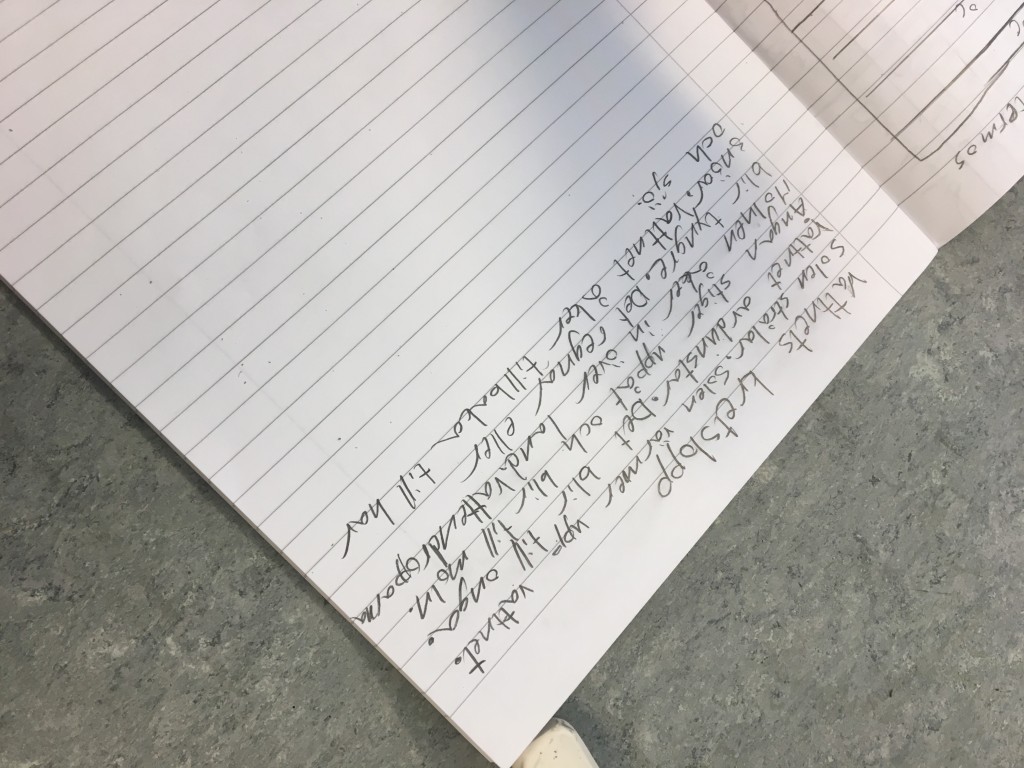 Vattnets kretslopp
Solen strålar. Solen värmer upp till vattnet.
Vattnet avdunstar. Det blir till ånga.
Ångan stiger uppåt och blir till moln.
Molnen åker in över land. Vattendropparna
blir tyngre. Det regnar eller
snöar. Vattnet åker tillbaka till hav
och sjö.
termos